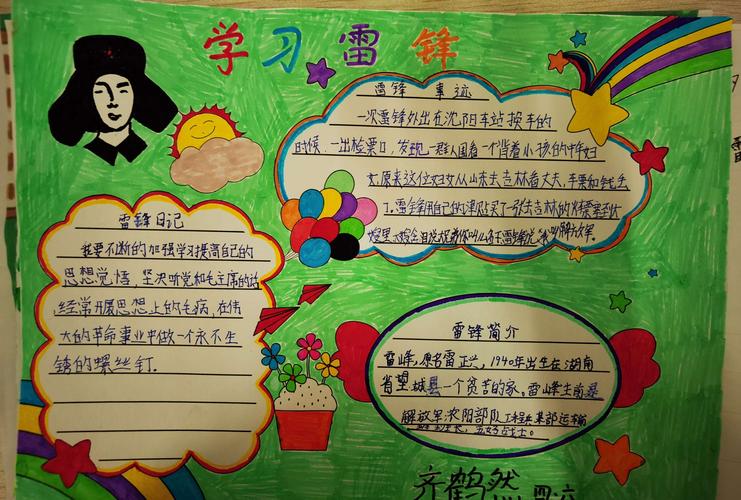 学习雷锋
雷锋事迹
一次雷锋外出在沈阳车站换车的
时候,一出检票口,发现一群人围着一个背着小孩的中年妇
女,原来这位妇女从山东去吉林看丈夫,车票和钱丢
了。雷锋用自己的津贴买了一张去吉林的火车票塞到
雷锋日记
我要不断的加强学习提高自己的
思想觉悟,坚决听党和毛主席的话
经常开展思想上的毛病,在伟
大的革命事业中做一个永不生
锈的螺丝钉.
雷锋简介
雷峰,原名雷正兴,1940年出生在湖南
省望城县一个贫苦的家,雷峰生前是
解放军沈阳部队工程兵某部运输
齐鹤然
四.六